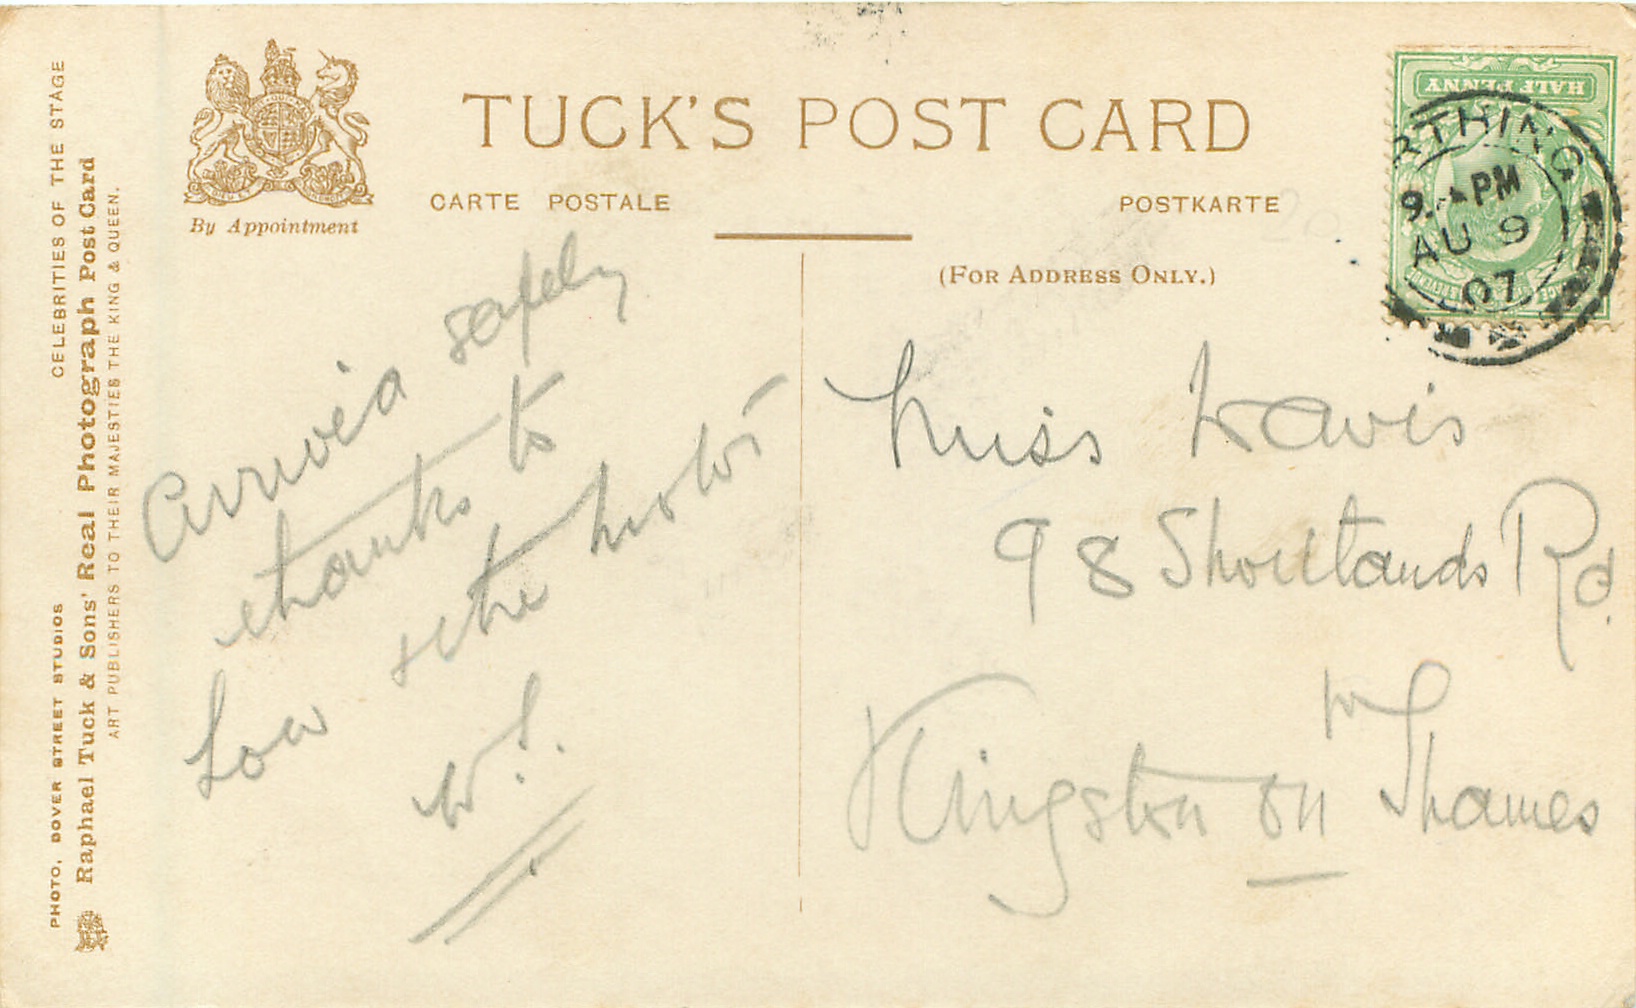 TUCK'S POST CARD
By Appointment
CARTE POSTALE
POSTKARTE
(FOR ADDRESS ONLY.)
HALF PENNY
RTHING
9. PM
AU 9
07
CELEBRITIES OF THE STAGE
PHOTO, DOVER STREET STUDIOS
Raphael Tuck & Sons' Real Photograph Post Card
ART PUBLISHERS TO THEIR MAJESTIES THE KING & QUEEN.
Arrived safely
thanks to
the motor
Love
W.
Miss Davis
98 Shortlands Rd.
Kingston on Thames